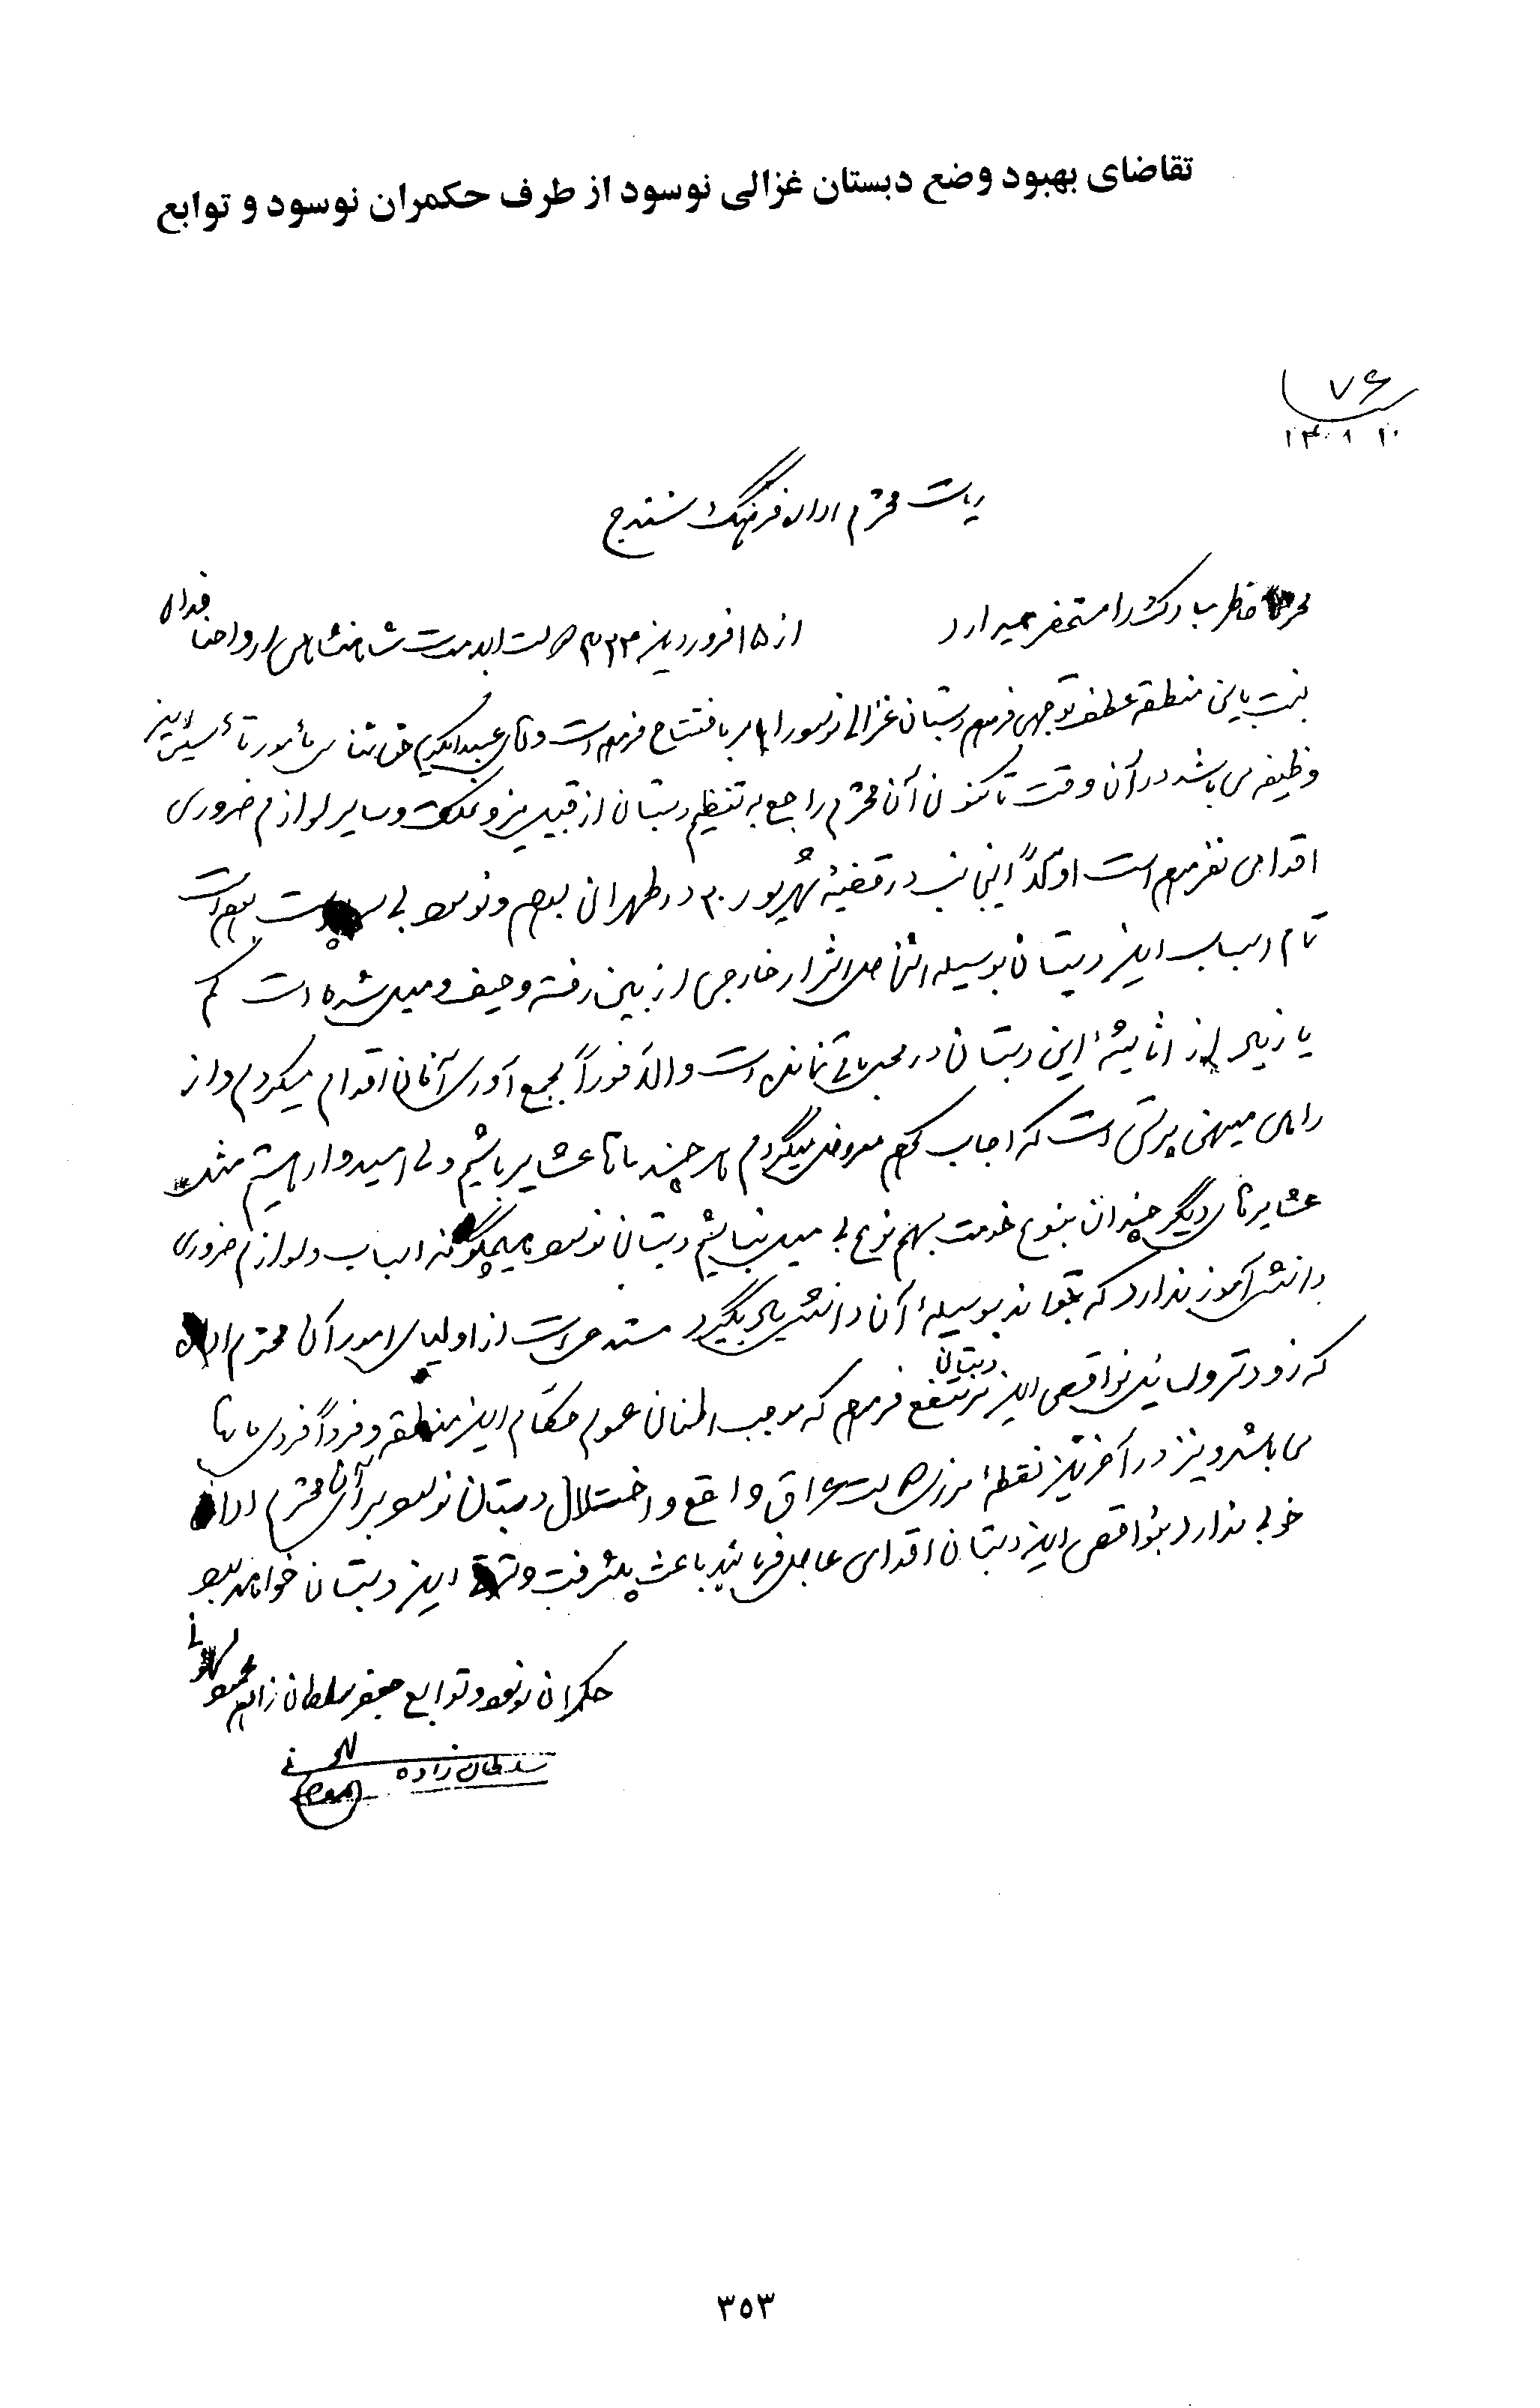 تقاضای بهبود وضع دبستان غزالی نوسود از طرف حکمران نوسود و توابع
۷۶
ریاست محترم اداره فرهنگ سنندج
خاطر مبارک را مستحضر میدارد از ۱۵ فروردین دولت ابدمدت شاهنشاهی ارواحنا فداه
باین منطقه عطف توجهی فرموده دبستان غزالی نوسود را امر بافتتاح فرموده است و آقای عبدالکریم حق شناس مأمور تأسیس این
وظیفه می باشد در آن وقت تا کنون آن محترم راجع به تنظیم دبستان از قبیل میز و نیمکت و سایر لوازم ضروری
اقدامی نفرموده است اینجانب در قضیهٔ شهریور ۲۰ در طهران بودم و نوسود بی بوده است
تمام اسباب این دبستان بوسیله اشخاص اشرار خارجی از بین رفته و حیف و میل شده است کم
یا زیاد از اثاثیهٔ این دبستان در محل باقی نمانده است والا فوراً بجمع آوری آنان اقدام میکردم و از
راه میهن پرستی است که معروض میگردم هر چند ماها عشایر باشیم ولی امیدوار هستیم مثل
عشایرهای دیگر چندان بنوع خدمت بهم نوع بی میل نباشیم دبستان نوسود هیچگونه اسباب و لوازم ضروری
دانش آموز ندارد که بتواند بوسیلهٔ آن دانش یاد بگیرد مستدعی است از اولیای امور آن محترم اداره
که زودتر وسایل نواقصی این دبستان مرتفع فرموده که موجب امتنان عموم حکام این منطقه و فرداً فردی ماها
می باشد و نیز در آخرین نقطهٔ مرزی دولت عراق واقع و اختلال دبستان نوسود برای آن محترم اداره
خوبی ندارد بنواقص این دبستان اقدامی عاجل فرمائید باعث پیشرفت و ترقی این دبستان خواهد بود
حکمران نوسود و توابع جعفر سلطان زاده محمود لهونی
سلطان زاده لهونی
محمود
۳۵۳